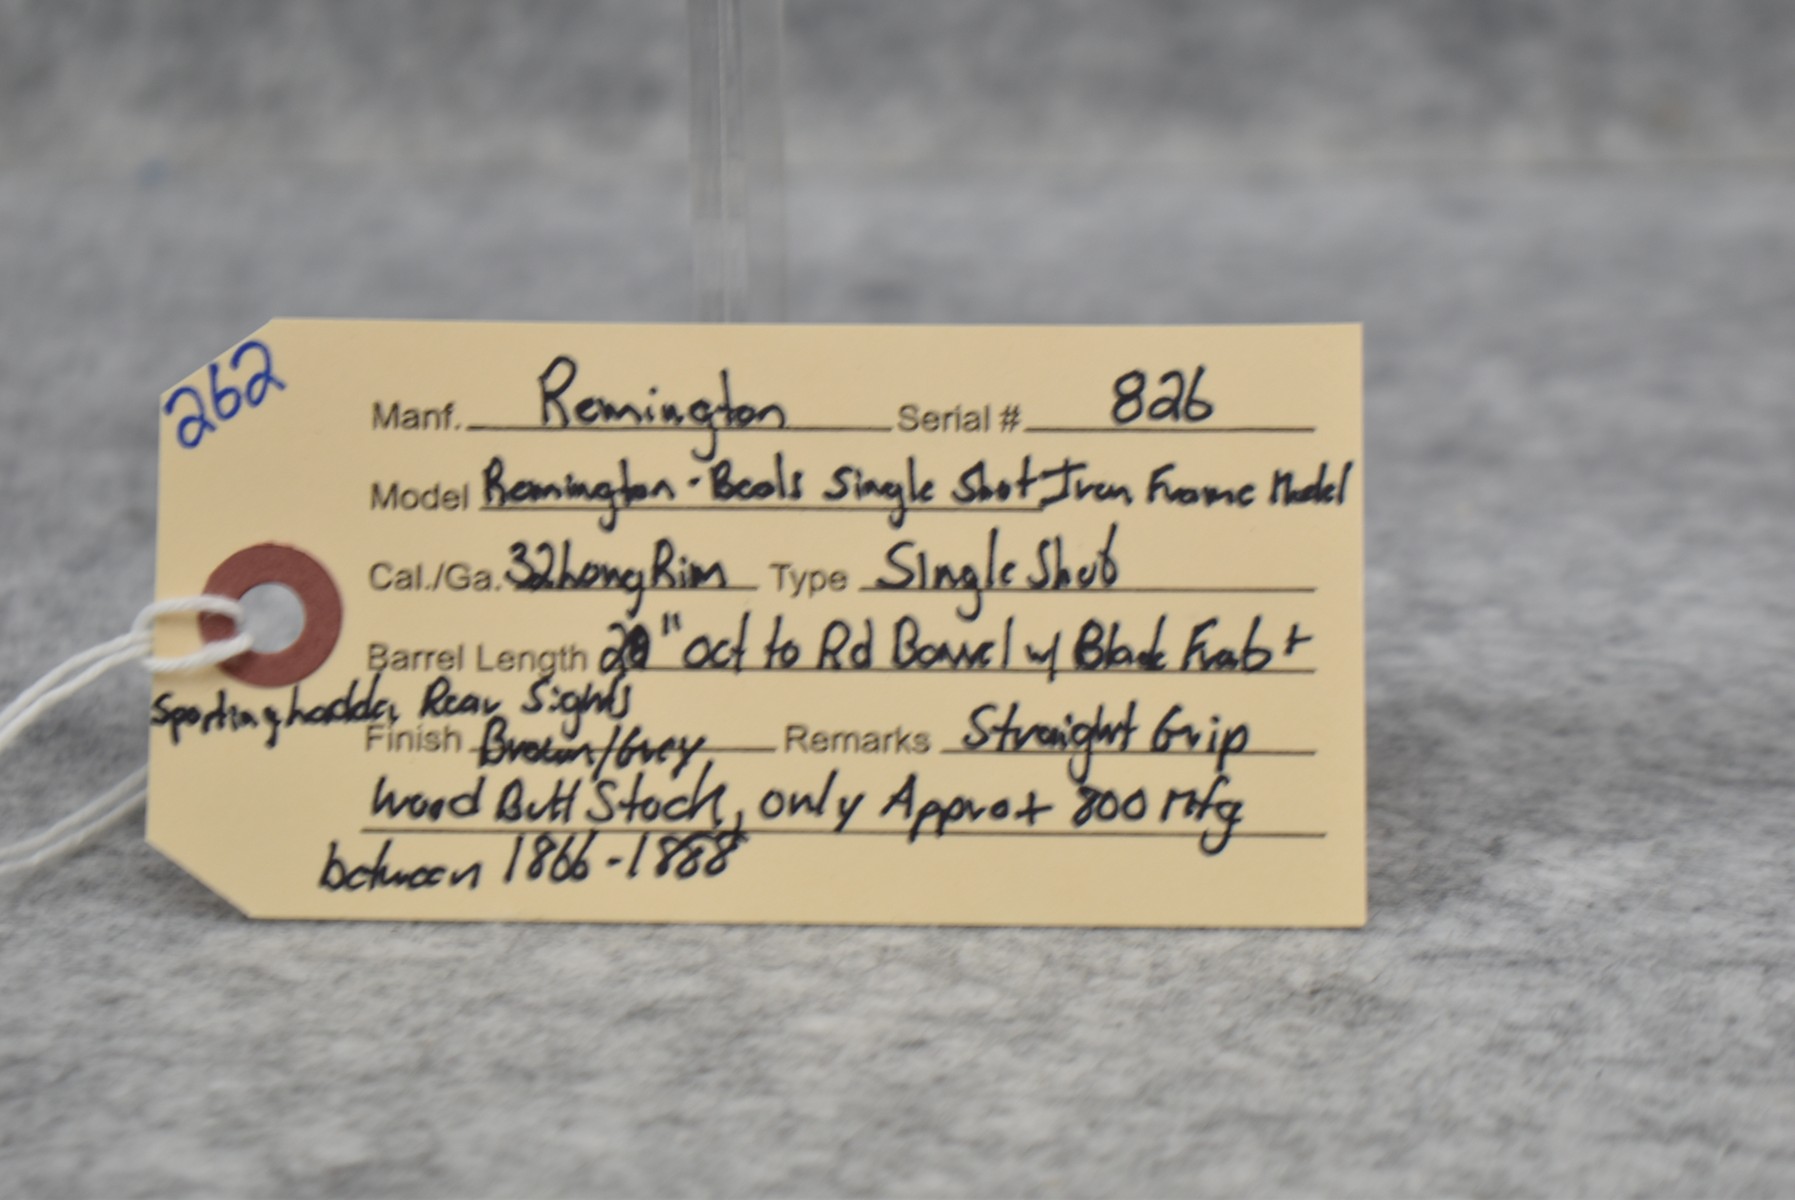 262
Manf. Remington Serial # 826
Model Remington-Beals Single Shot Iron Frame Model
Cal./Ga. 32 Long Rim Type Single Shot
Barrel Length "Oct to Rd Barrel w/ Blade Front +
Sporting Ladder Rear Sights
Finish Brown/Grey Remarks Straight Grip
Wood Butt Stock, only Approx 800 Mfg
between 1866-1888